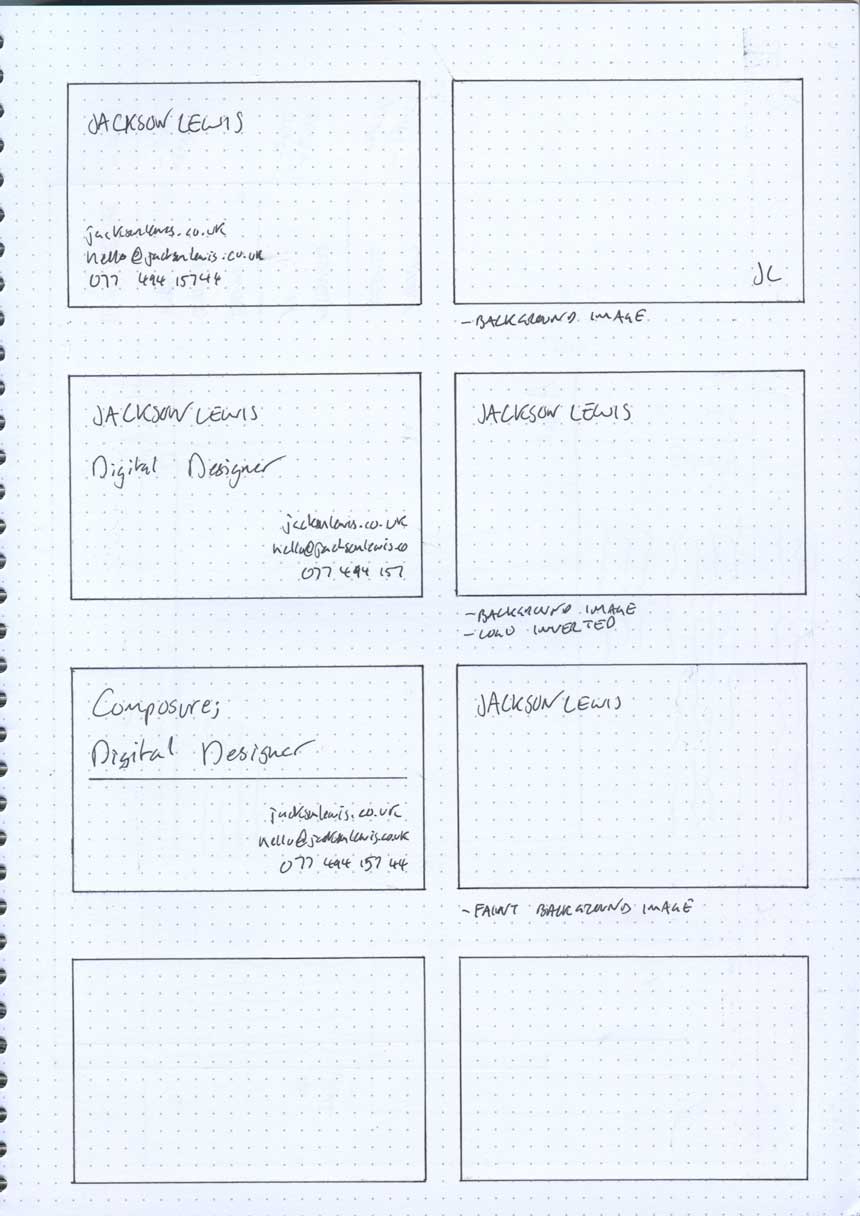 JACKSON LEWIS
jacksonlewis.co.uk
hello@jacksonlewis.co.uk
077 494 15744
JL
- BACKGROUND IMAGE
JACKSON LEWIS
Digital Designer
jacksonlewis.co.uk
hello@jacksonlewis.co
077 494 157
JACKSON LEWIS
- BACKGROUND IMAGE
- LOGO INVERTED
Composure;
Digital Designer
jacksonlewis.co.uk
hello@jacksonlewis.co.uk
077 494 157 44
JACKSON LEWIS
- FAINT BACKGROUND IMAGE